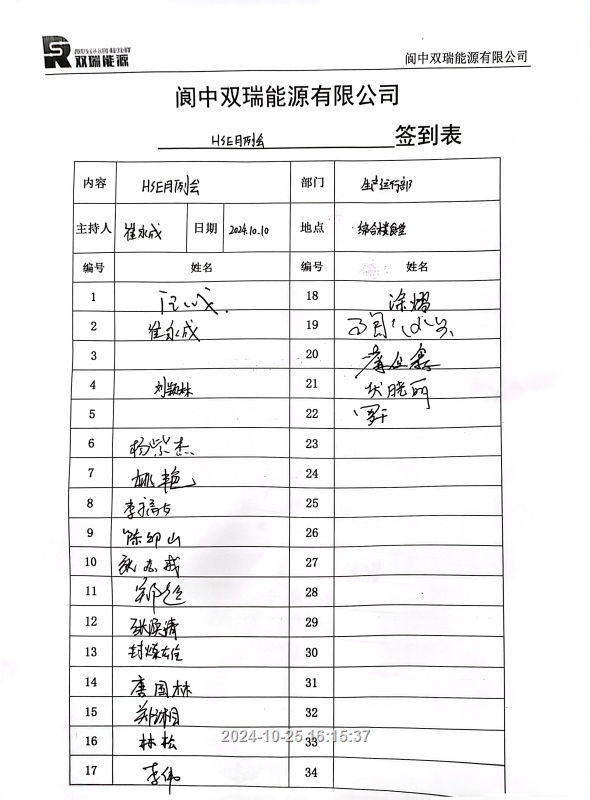 双瑞能源
阆中双瑞能源有限公司
阆中双瑞能源有限公司
HSE月例会 签到表
内容 HSE月例会 部门 生产运行部
主持人 崔永成 日期 2024.10.10 地点 综合楼食堂
编号 姓名 编号 姓名
1 18 涂熠
2 崔永成 19
3 20
4 刘颖林 21 伏晓丽
5 22
6 杨紫杰 23
7 姚艳 24
8 25
9 陈卯山 26
10 27
11 郑 28
12 张顺清 29
13 封焕雄 30
14 唐国林 31
15 32
16 林松 33
17 李伟 34
2024-10-25 16:15:37